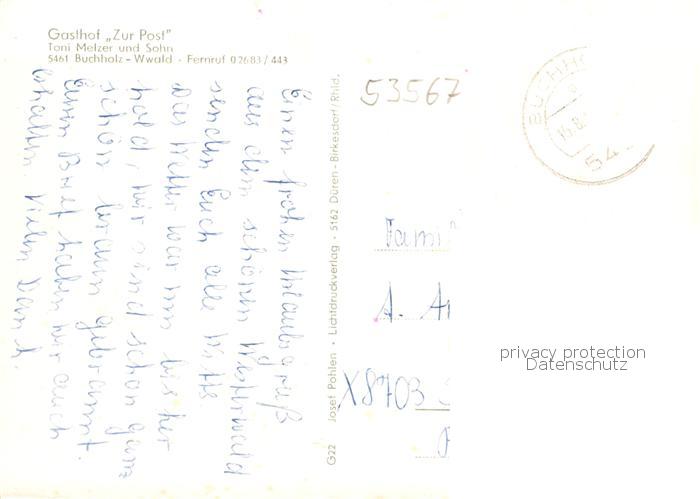 Gasthof „Zur Post"
Toni Melzer und Sohn
5461 Buchholz-Wwald · Fernruf 02683/443
Einen frohen Urlaubsgruß
aus dem schönen Westerwald
senden Euch alle
Das Wetter war nun bisher
hold, wir sind schon ganz
schön braun gebrannt.
Einen Brief haben wir auch
erhalten. Vielen Dank.
G22 Josef Pohlen · Lichtdruckverlag · 5162 Düren-Birkesdorf/Rhld.
53567
BUCHHO
15.8.
54
Fami
A. A
X8703
privacy protection
Datenschutz